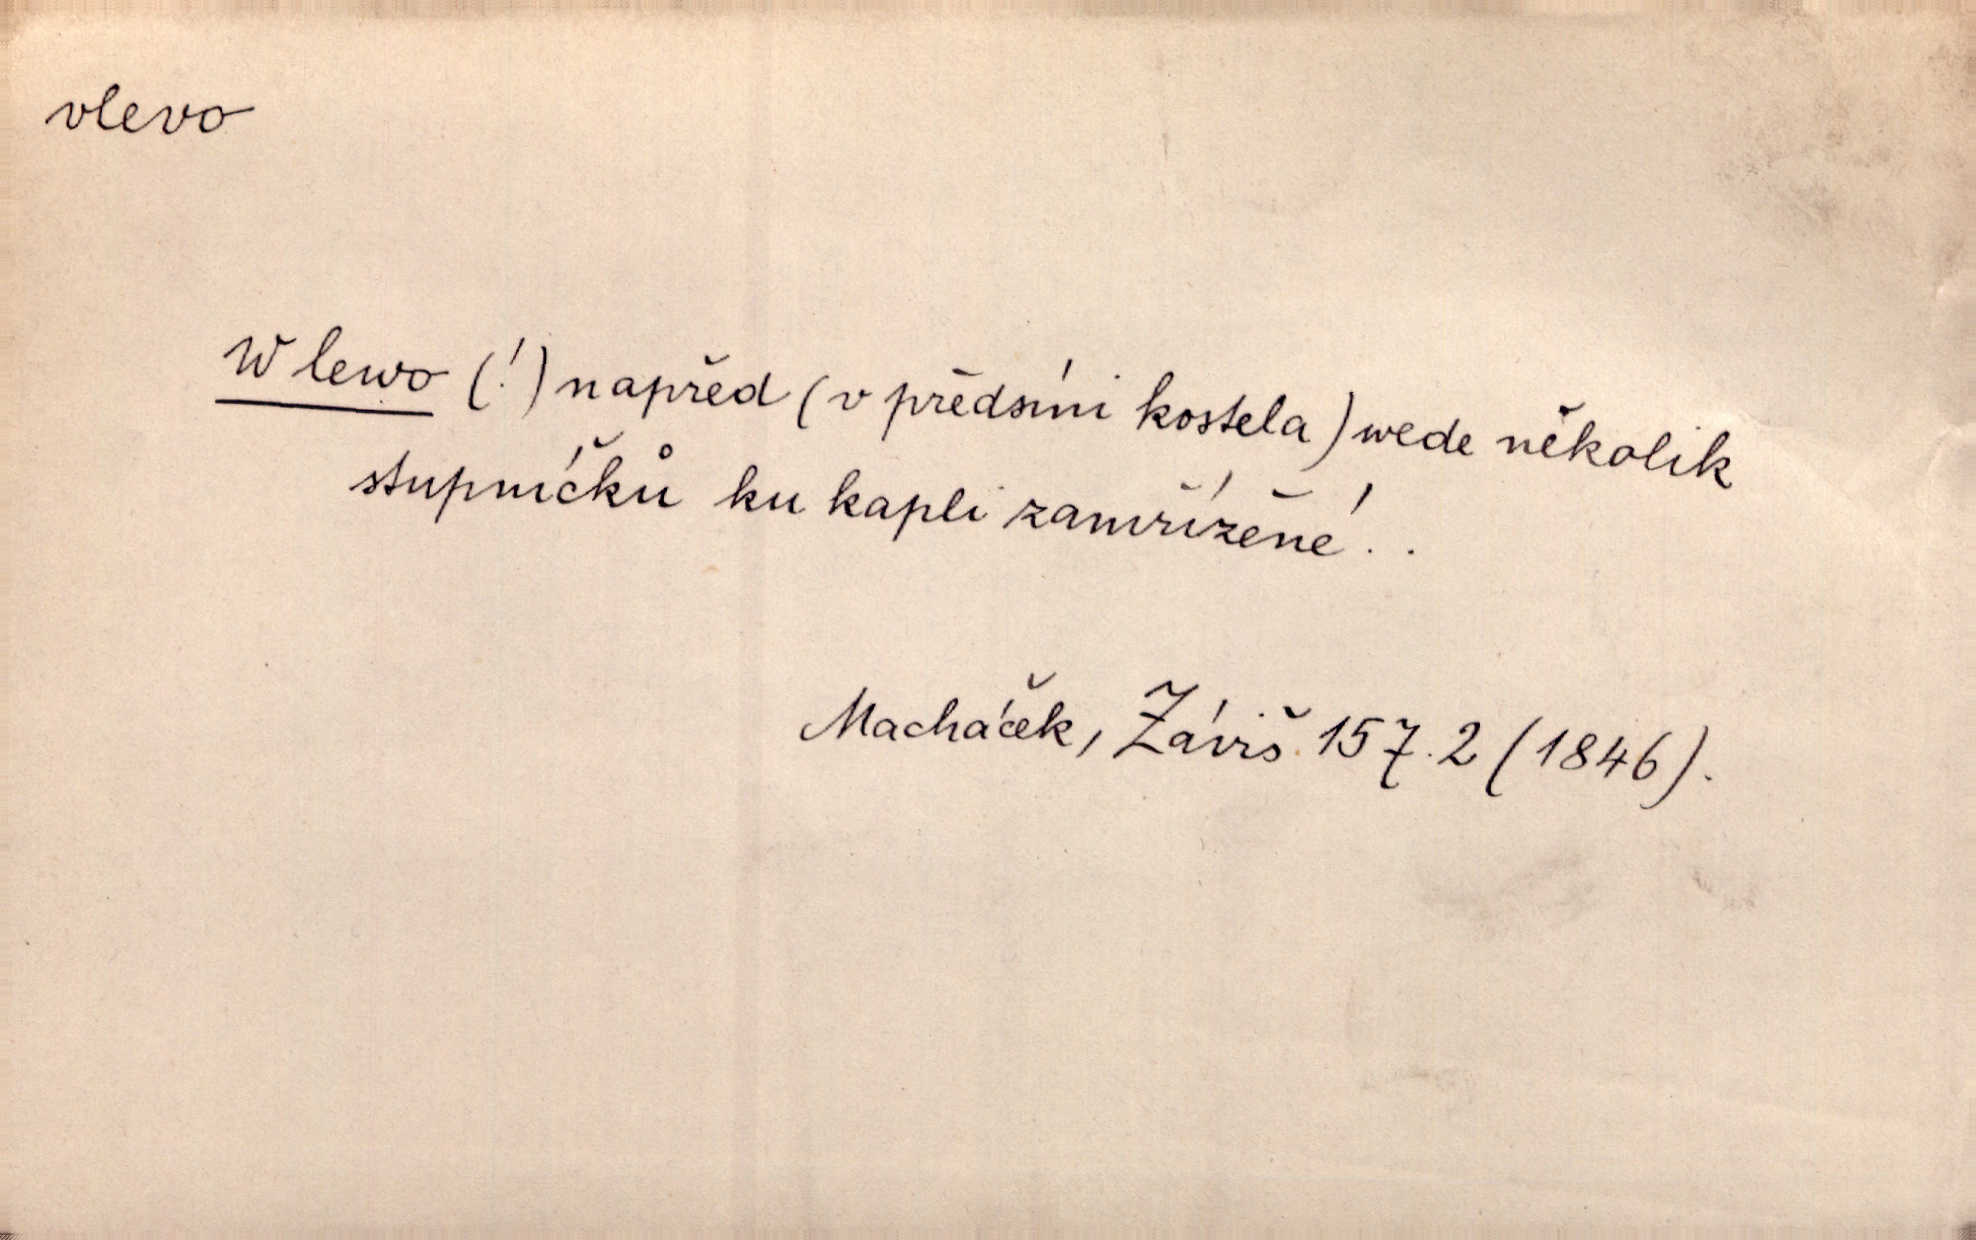 vlevo
W lewo (!) napřed (v předsíni kostela) wede několik
stupníčků ku kapli zamřížěné..
Macháček, Záviš 157.2 (1846).